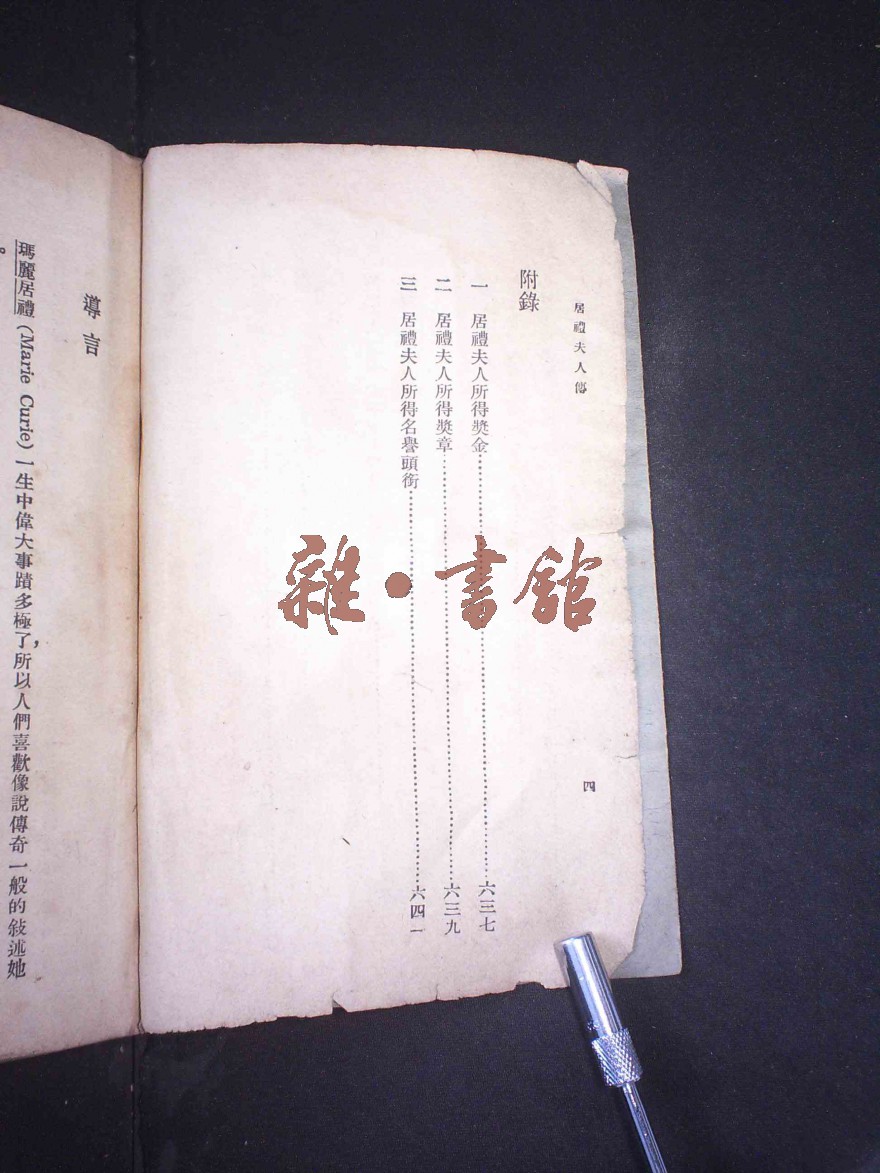 居禮夫人傳
四
附錄
一 居禮夫人所得獎金……六三七
二 居禮夫人所得獎章……六三九
三 居禮夫人所得名譽頭銜……六四一
導言
瑪麗居禮(Marie Curie)一生中偉大事蹟多極了，所以人們喜歡像說傳奇一般的敍述她
。
雜•書館